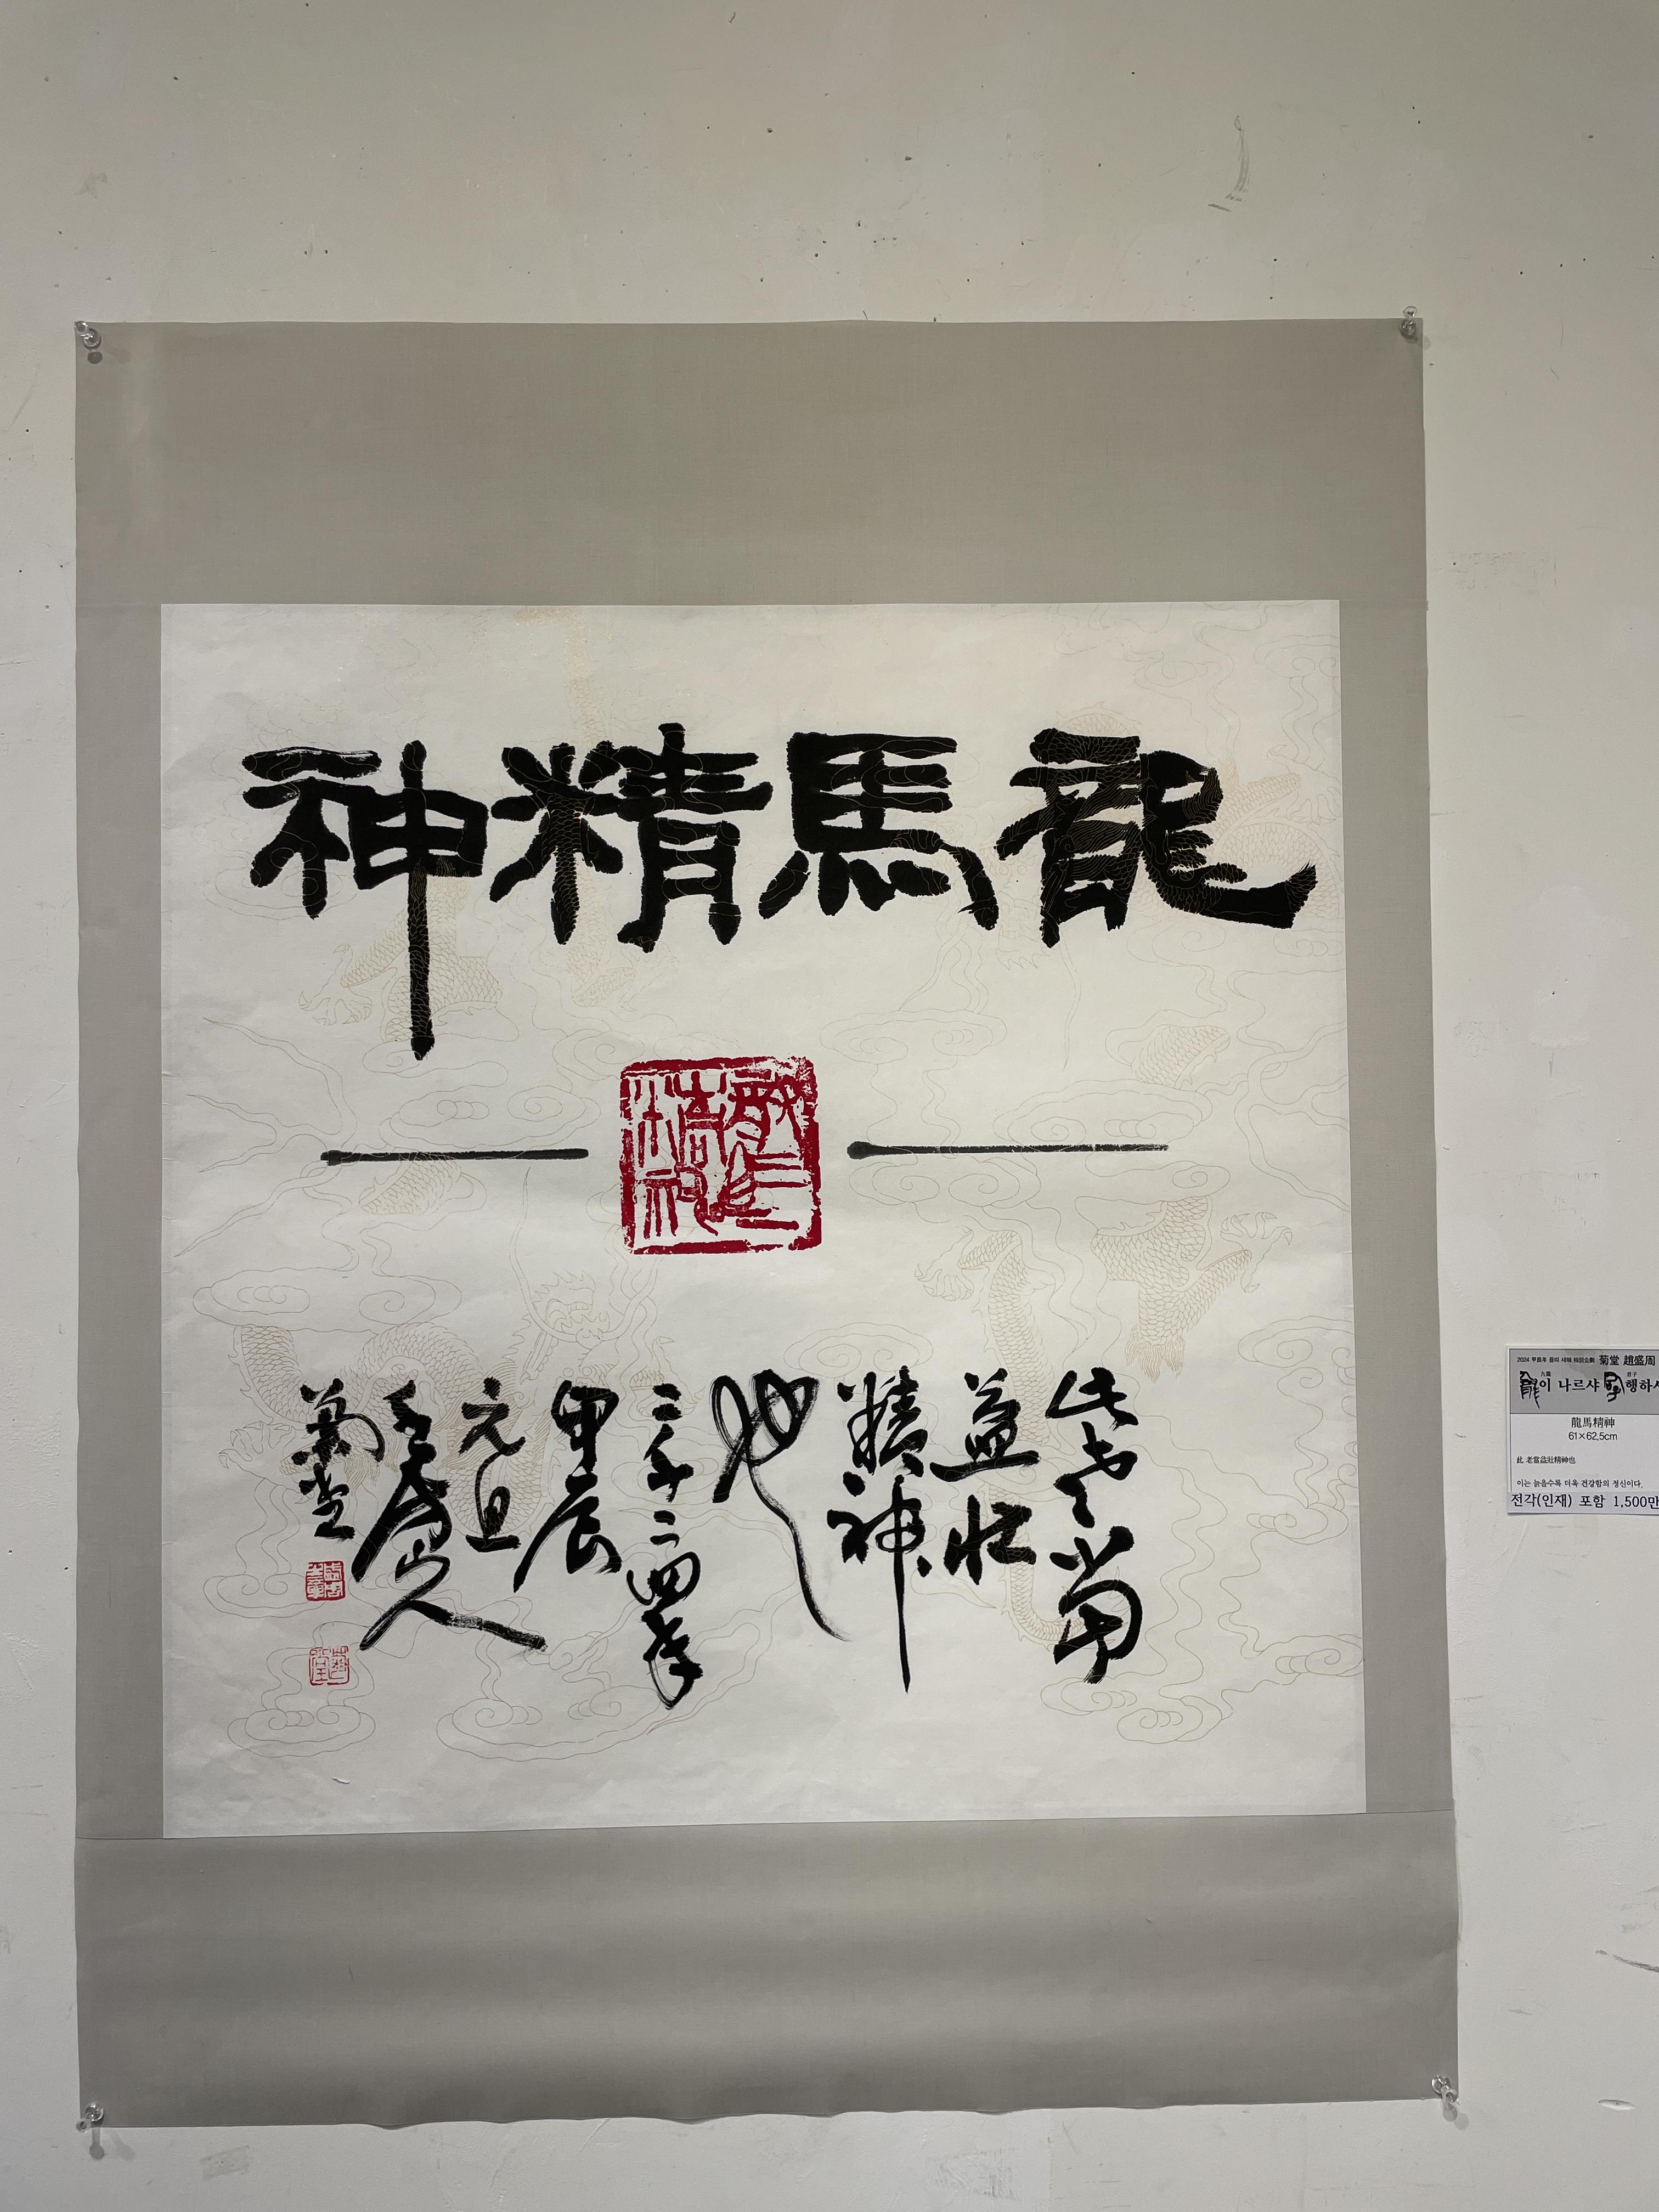 龍馬精神
此老當
益壯
精神
也
二千二四年
甲辰
元旦
山人
菊堂
2024 甲辰年 용띠 새해 特別企劃 菊堂 趙盛周
龍이 나르샤
龍馬精神
61×62.5cm
此 老當益壯精神也
이는 늙을수록 더욱 건강함의 정신이다.
전각(인재) 포함 1,500만